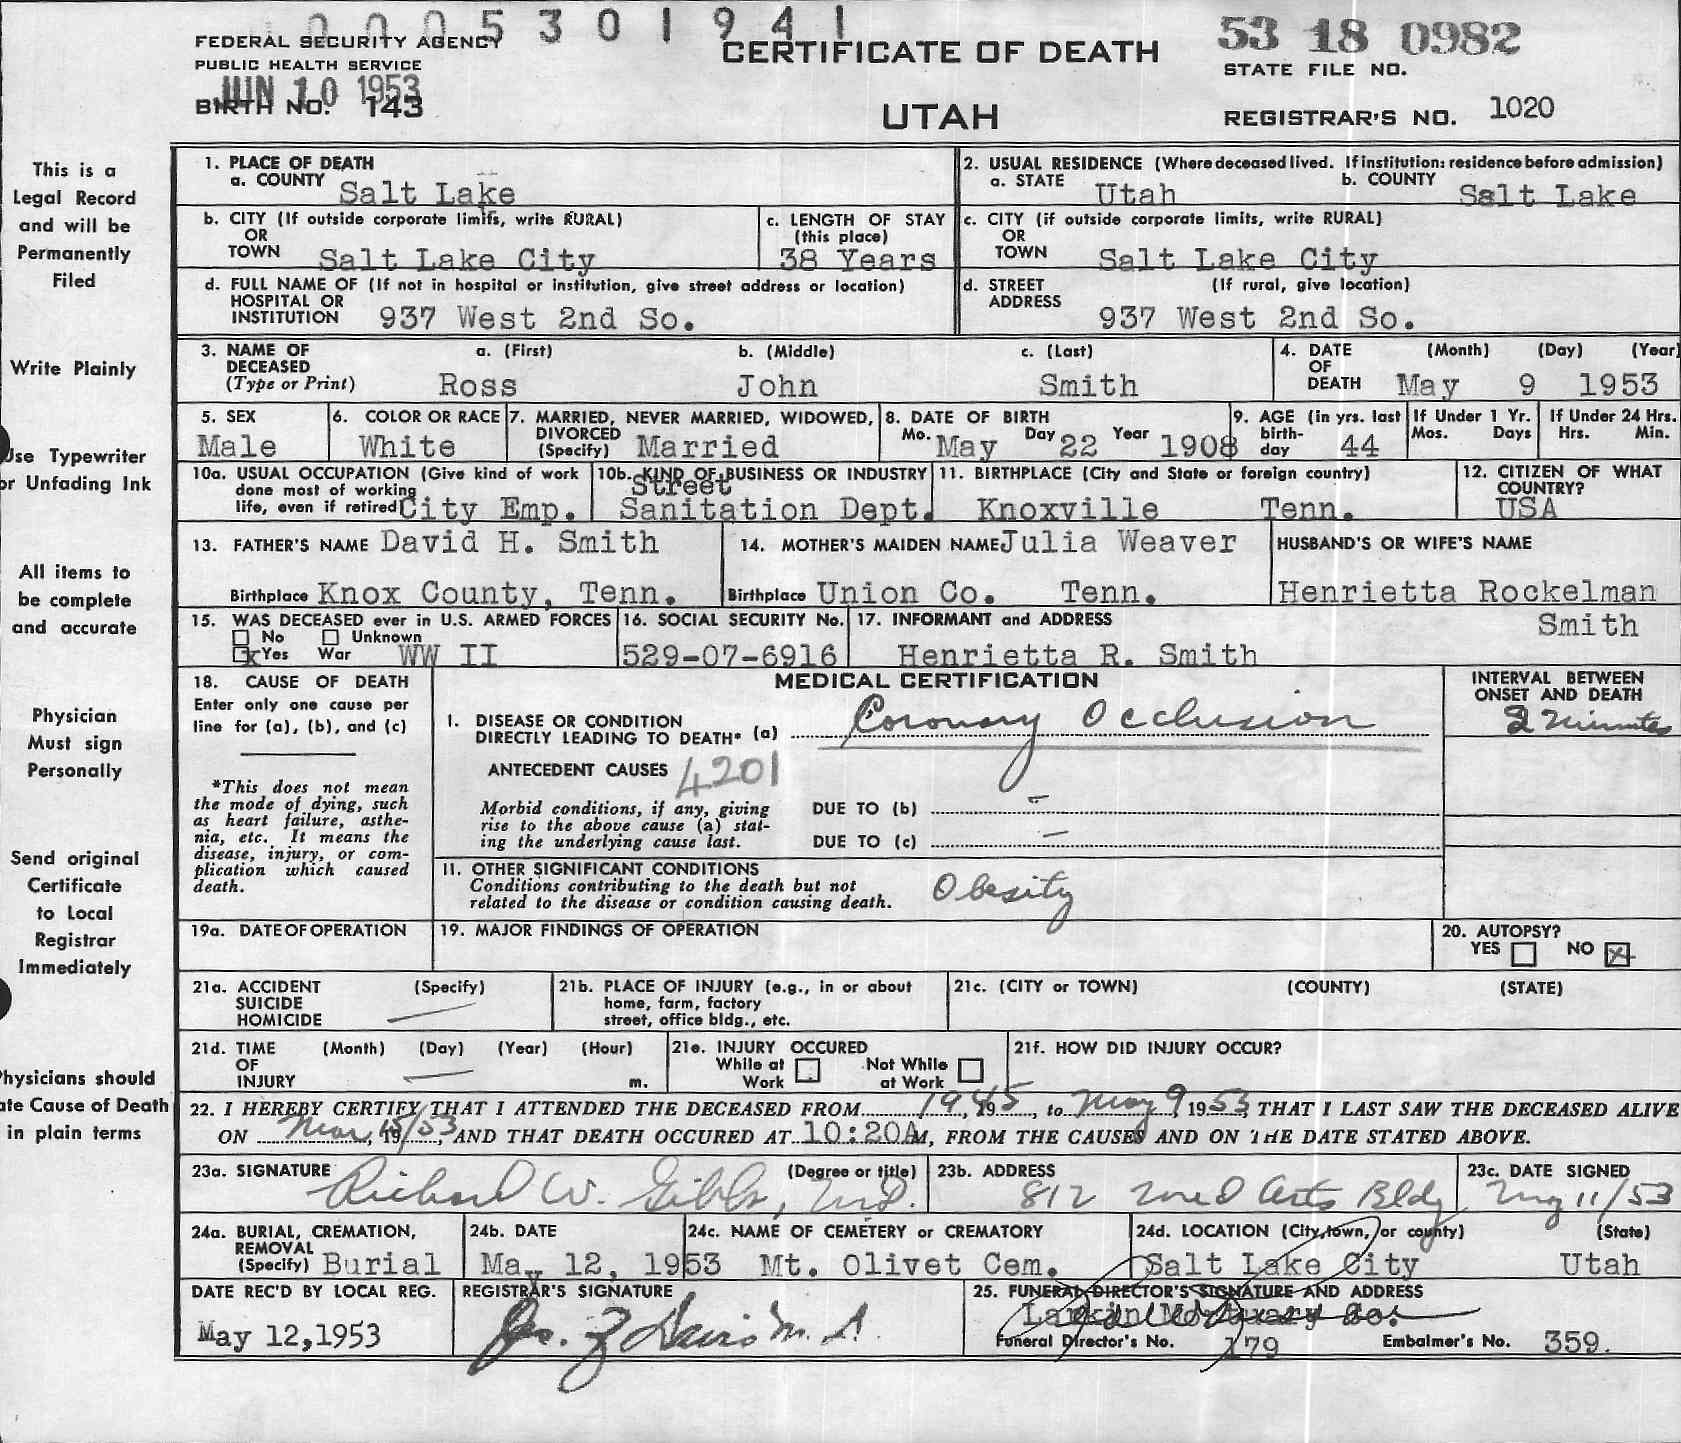 0005301941
FEDERAL SECURITY AGENCY
PUBLIC HEALTH SERVICE
JUN 10 1953
BIRTH NO. 143
CERTIFICATE OF DEATH
UTAH
53 18 0982
STATE FILE NO.
REGISTRAR'S NO. 1020
This is a
Legal Record
and will be
Permanently
Filed
Write Plainly
Use Typewriter
or Unfading Ink
All items to
be complete
and accurate
Physician
Must sign
Personally
Send original
Certificate
to Local
Registrar
Immediately
Physicians should
ate Cause of Death
in plain terms
1. PLACE OF DEATH
a. COUNTY Salt Lake
2. USUAL RESIDENCE (Where deceased lived. If institution: residence before admission)
a. STATE Utah b. COUNTY Salt Lake
b. CITY (If outside corporate limits, write RURAL)
OR
TOWN Salt Lake City
c. LENGTH OF STAY
(this place)
38 Years
c. CITY (if outside corporate limits, write RURAL)
OR
TOWN Salt Lake City
d. FULL NAME OF (If not in hospital or institution, give street address or location)
HOSPITAL OR
INSTITUTION 937 West 2nd So.
d. STREET (If rural, give location)
ADDRESS
937 West 2nd So.
3. NAME OF a. (First) b. (Middle) c. (Last)
DECEASED
(Type or Print) Ross John Smith
4. DATE (Month) (Day) (Year)
OF
DEATH May 9 1953
5. SEX
Male
6. COLOR OR RACE
White
7. MARRIED, NEVER MARRIED, WIDOWED,
DIVORCED
(Specify) Married
8. DATE OF BIRTH
Mo. May Day 22 Year 1908
9. AGE (in yrs. last
birth-
day 44
If Under 1 Yr.
Mos. Days
If Under 24 Hrs.
Hrs. Min.
10a. USUAL OCCUPATION (Give kind of work
done most of working
life, even if retired City Emp.
10b. KIND OF BUSINESS OR INDUSTRY
Street
Sanitation Dept.
11. BIRTHPLACE (City and State or foreign country)
Knoxville Tenn.
12. CITIZEN OF WHAT
COUNTRY?
USA
13. FATHER'S NAME David H. Smith
Birthplace Knox County, Tenn.
14. MOTHER'S MAIDEN NAME Julia Weaver
Birthplace Union Co. Tenn.
HUSBAND'S OR WIFE'S NAME
Henrietta Rockelman
Smith
15. WAS DECEASED ever in U.S. ARMED FORCES
No Unknown
x Yes War WW II
16. SOCIAL SECURITY No.
529-07-6916
17. INFORMANT and ADDRESS
Henrietta R. Smith
18. CAUSE OF DEATH
Enter only one cause per
line for (a), (b), and (c)
*This does not mean
the mode of dying, such
as heart failure, asthe-
nia, etc. It means the
disease, injury, or com-
plication which caused
death.
MEDICAL CERTIFICATION
INTERVAL BETWEEN
ONSET AND DEATH
I. DISEASE OR CONDITION
DIRECTLY LEADING TO DEATH* (a) Coronary Occlusion
2 minutes
ANTECEDENT CAUSES 4201
Morbid conditions, if any, giving
rise to the above cause (a) stat-
ing the underlying cause last.
DUE TO (b) -
DUE TO (c) -
II. OTHER SIGNIFICANT CONDITIONS
Conditions contributing to the death but not
related to the disease or condition causing death.
Obesity
19a. DATE OF OPERATION
19. MAJOR FINDINGS OF OPERATION
20. AUTOPSY?
YES NO x
21a. ACCIDENT (Specify)
SUICIDE
HOMICIDE
21b. PLACE OF INJURY (e.g., in or about
home, farm, factory
street, office bldg., etc.
21c. (CITY or TOWN) (COUNTY) (STATE)
21d. TIME (Month) (Day) (Year) (Hour)
OF
INJURY m.
21e. INJURY OCCURED
While at Not While
Work at Work
21f. HOW DID INJURY OCCUR?
22. I HEREBY CERTIFY THAT I ATTENDED THE DECEASED FROM 1945, 19, to May 9, 1953, THAT I LAST SAW THE DECEASED ALIVE
ON Mar 15/53, 19, AND THAT DEATH OCCURED AT 10:20A M, FROM THE CAUSES AND ON THE DATE STATED ABOVE.
23a. SIGNATURE (Degree or title)
Richard W. Gibbs, M.D.
23b. ADDRESS
812 Med Arts Bldg
23c. DATE SIGNED
May 11/53
24a. BURIAL, CREMATION,
REMOVAL
(Specify) Burial
24b. DATE
May 12, 1953
24c. NAME OF CEMETERY or CREMATORY
Mt. Olivet Cem.
24d. LOCATION (City, town, or county) (State)
Salt Lake City Utah
DATE REC'D BY LOCAL REG.
May 12, 1953
REGISTRAR'S SIGNATURE
25. FUNERAL DIRECTOR'S SIGNATURE AND ADDRESS
Larkin Mortuary Co.
Funeral Director's No. 179 Embalmer's No. 359.